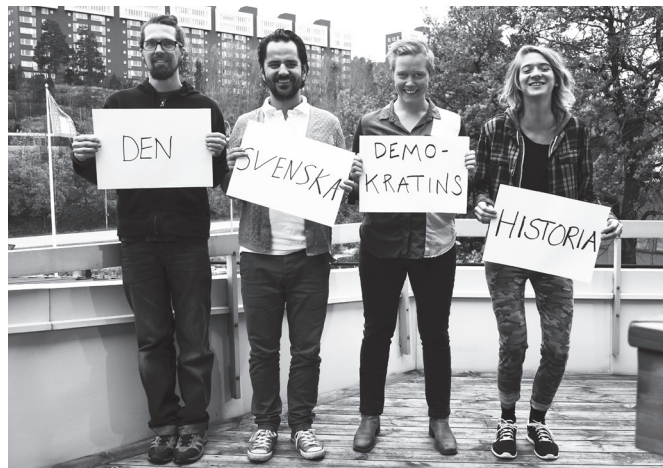 DEN
SVENSKA
DEMO-
KRATINS
HISTORIA